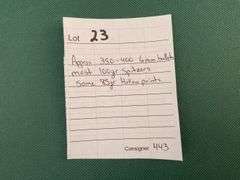 Lot 23
Approx. 350-400 6mm bullets
most 100gr Spitzers
some 75gr Hollow points
Consignor 443